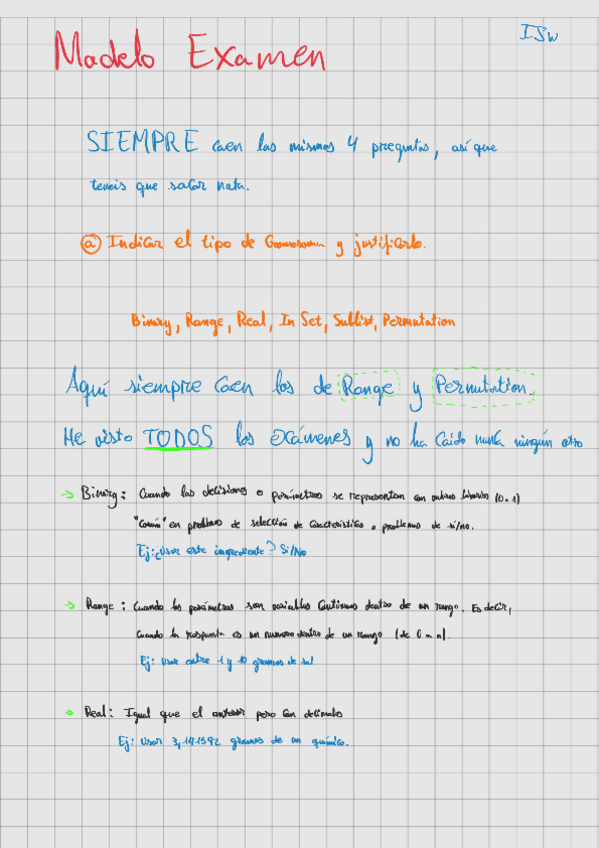 ISW
Modelo Examen
SIEMPRE caen las mismas 4 preguntas, así que
teneis que sacar nata.
ⓐ Indicar el tipo de Cromosoma y justificarlo.
Binary, Range, Real, In Set, Sublist, Permutation
Aquí siempre caen los de Range y Permutation.
He visto TODOS los exámenes y no ha caído nunca ningún otro
→ Binary: Cuando las decisiones o parámetros se representan con valores binarios (0-1)
"Común" en problemas de selección de características o problemas de si/no.
Ej: ¿Usar este ingrediente? Si/No
→ Range: Cuando los parámetros son variables continuas dentro de un rango. Es decir,
cuando la respuesta es un numero dentro de un rango (de 0 a n).
Ej: Usar entre 1 y 10 gramos de sal
→ Real: Igual que el anterior pero con decimales
Ej: Usar 3,141592 gramos de un químico.